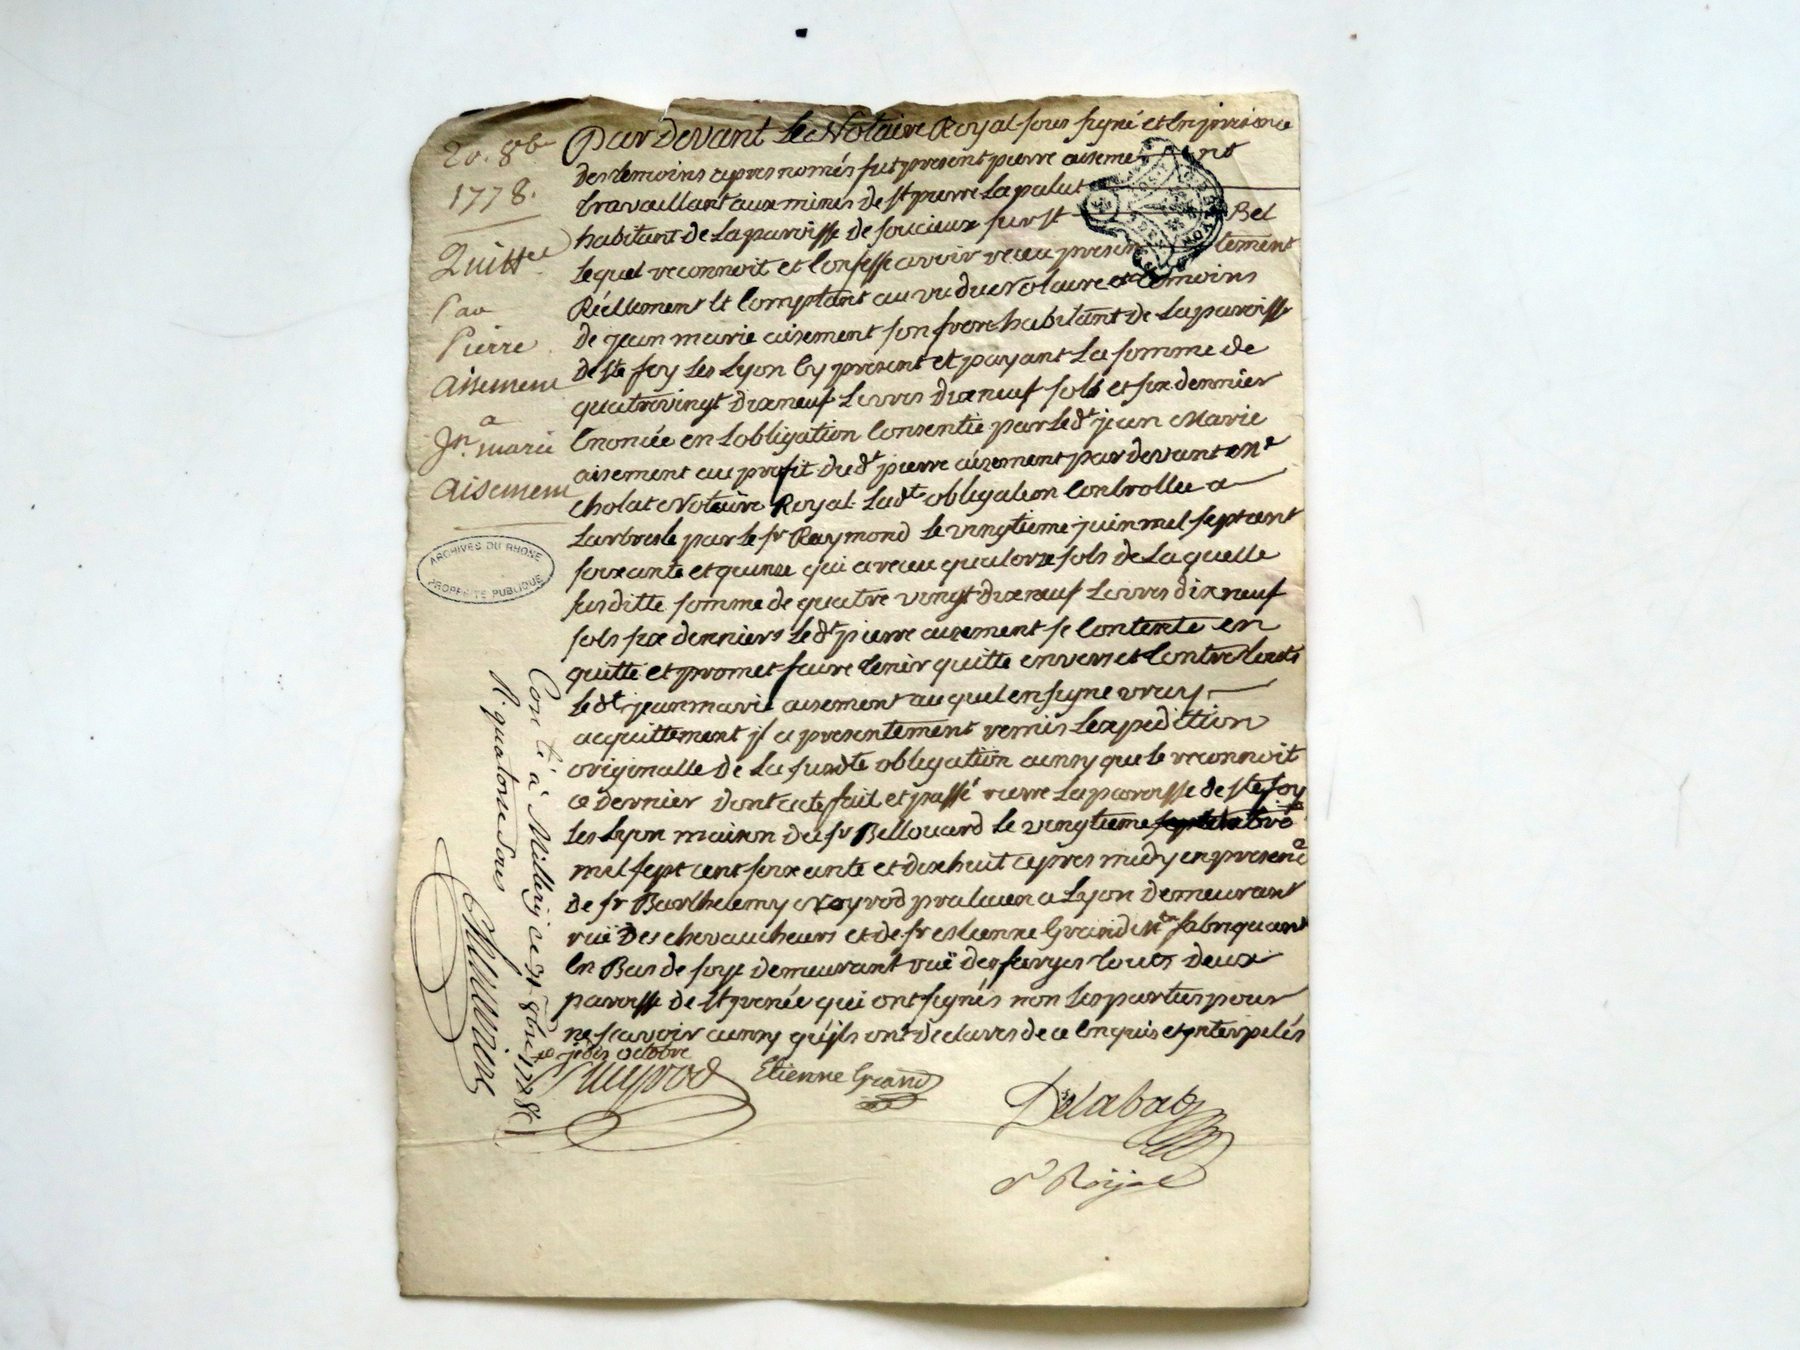 20. 8bre
1778.
Quittce
Par
Pierre
aisement
a
Jn. marie
aisement
ARCHIVES DU RHONE
PROPRIETE PUBLIQUE
Par devant Le Notaire Royal sous signé et En presence
des temoins apres només fut present pierre aisement
travaillant aux mines de st pierre La palut
habitant de La paroisse de soucieux sur st Bel
Lequel reconnoit et Confesse avoir receu presentement
Réellement et Comptant au vu du Notaire et temoins
de jean marie aisement son frere habitant de La paroisse
de ste foy Les Lyon Cy present et payant La somme de
quatrevingt dix neuf Livres dix neuf sols et six dennier
Enoncée en Lobligation Consentie par Le dt jean Marie
aisement au profit du dt pierre aisement par devant me
cholat Notaire Royal Ladte obligation Controllee a
Larbresle par Le sr Raymond Le vingtieme juin mil sept cent
soixante et quinze qui a receu quatorze sols de Laquelle
susditte somme de quatre vingt dix neuf Livres dix neuf
sols six denniers Le dt pierre aisement se Contente en
quitte et promet faire tenir quitte envers et Contre touts
Le dt jean marie aisement au quel en signe vray
acquittement jl a presentement remis Lexpedition
originalle de La susdte obligation ainsy que le reconnoit
ce dernier dont acte fait et passé riere La paroisse de ste foy
Les Lyon maison du sr Bellouard Le vingtieme
mil sept cent soixante et dix huit apres midy en presence
de sr Barthelemy praticien a Lyon demeurant
ruë Des chevaucheurs et de sr estienne Grand Md fabriquant
En Bas de soye demeurant ruë des farges touts deux
paroisse de st jrenée qui ont signés non Les parties pour
ne scavoir ainsy quils ont declarés de ce Enquis et jnterpelés
octobre
Etienne Grand
Delabat
nre Roÿal
Con lé à Millery ce 31 8bre 1778
R. quatorze sols